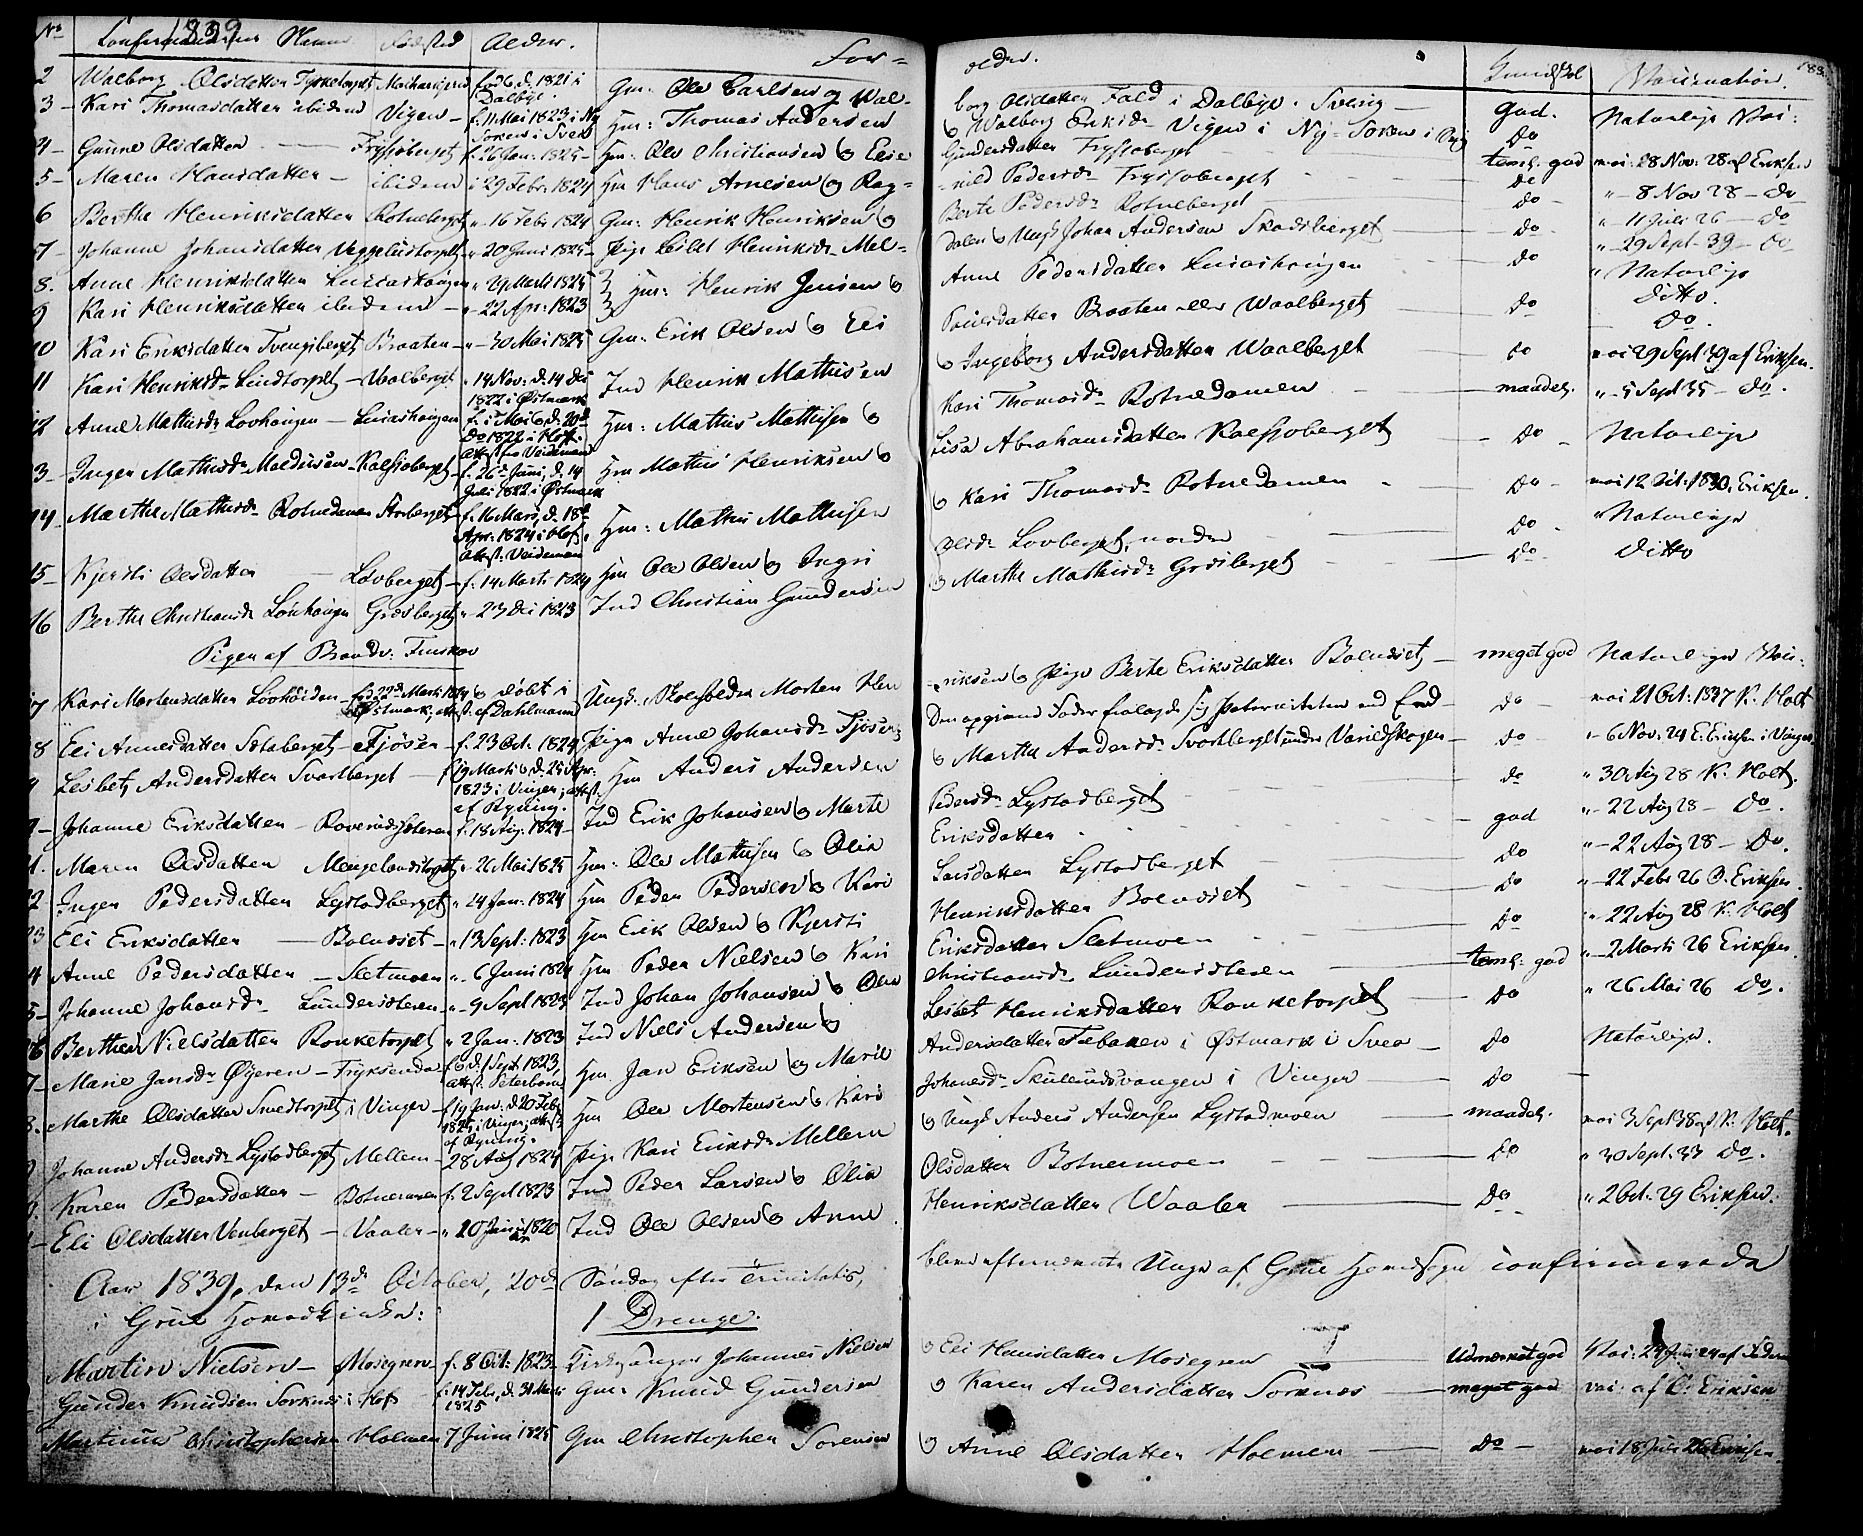 1839
No Confirmandernes Navne Födested Alder. For=
ældre. Kundskab Vaccination.
2 Walborg Olsdatten Tyskertorpet fød 6 d. 1821 i Dalbye. Gm: Ole Carlsen og Wal-
borg Olsdatten Fald i Dalbye. Sverig — god. Naturlige Vac:
3 - Kari Thomasdatten ibidem Vigen f. 11 Mai 1823 i Ny Soken i Sver Hm: Thomas Andersen
og Walborg Eriksdr Vigen i Ny-Soken i Do
4 - Gunne Olsdatten — Frysjøberget f. 26 Jan: 1825 - Hm: Ole Christiansen og Eli
Gundersdatten Frysjoberget temel: god vac: 28 Nov: 28 af Eriksen
5 - Maren Hansdatten - ibidem 29 Febr 1824 Hm Hans Arnesen og Rag-
nild Pedersdr Frysjoberget do " - 8 Nov 28 - do
6 Berthe Henriksdatten Rotneberget " 16 Febr 1824 Gm: Henrik Henriksen og
Berte Pedersdr Rotneberget do - " - 11 Juli 26 - do
7 - Johanne Johansdatten " 20 Juni 1825 - Pige Lisbet Henriksdr Mel-
dalen og Ungk Johan Andersen Skadsberget do - " 29 Sept - 39 - do
8. Anne Henriksdatten Lucashaugen " 29 Marti 1825 Hm: Henrik Jensen og
Anne Pedersdatten Lucashaugen do " Naturlige
9 Kari Henriksdatten ibidem - " 22 Apr: 1823
Ditto.
10 Kari Eriksdatten Tvengsberget Braaten - " - 30 Mai 1825 Gm: Erik Olsen og Eli
Poulsdatten Braaten eller Waalberget do Do.
11 Kari Henriksdr Lindtorpet - Waalberget " 14 Nov: d. 14 Dec 1822 i Østmark Ind Henrik Mathisen
og Ingeborg Andersdatten Waalberget do vac 29 Sept 39 af Eriksen.
12 Anne Mathisdr Lovhaugen - Lucashaugen f. 1 Mai d. 20d Do 1822 i Hof. Attest fra Veidemann Hm: Mathis Mathisen og
Kari Thomasdr Rotnedamen maadel. " - 5 Sept 35 - do.
13 - Inger Mathisdr - Kalsjoberget - f. 26 Juni, d. 14 Juli 1822 i Østmark Hm Mathis Henriksen og
Lisa Abrahamsdatten Kalsjoberget - Do - Naturlige
14 - Marthe Mathisdr Rotnedamen f. 16 Mars, d. 18d Apr: 1824 i Hof, Attest: Veideman Hm: Mathis Mathisen
og Kari Thomasdr Rotnedamen - Do - vac 12 Oct: 1830, Eriksen.
15 - Kjersti Olsdatten — Lovberget - f. 14 Marti 1824 Hm Ole Olsen og Ingri
Olsdr Lovberget, norden Do - " Naturlige
16 Berthe Christiansdr Lovhaugen Gransberget " 23 Dec 1823 Ind Christian Gundersen
og Marthe Mathisdr Gransberget Do - Ditto
Piger af Brandv: Finskov
17 Kari Mortensdatten f. 22de Marti 1824 og døbt i Østmark; attest af Dahlmann Ungk. Morten Hen
riksen og Pige Berte Eriksdatten Bolneset - meget god Naturlige Vac:
18 Eli Annesdatten Sætaberget - Fjösen - f. 23 Oct. 1824 Pige Anne Johansdr Fjösen;
Den opgivne Fader fralagde sig Paterniteten ved Eed - do - vac 21 Oct: 1837 K. Holt
19 Lisbet Andersdatten Svartberget - f. 19 Marti og d. 25 Apr: 1823 i Vinger; attest. af Ryning. Hm Anders Andersen
og Marthe Andersdr Svartberget under Varildskogen - do - " - 6 Nov: 24 E. Eriksen i Vinger
20 - Johanne Eriksdatten - f. 18 Aug: 1824 - Ind Erik Johansen og Marte
Pedersdr Lystadberget do " 30 Aug 28 K. Holt.
21. Maren Olsdatten Mengelandstorpet " 26 Mai 1825 Hm: Ole Mathisen og Olia
Eriksdatten - god " - 22 Aug 28 - Do.
22 Inger Pedersdatten Lystadberget " 24 Jan: 1824 Hm Peder Pedersen og Kari
Larsdatten Lystadberget do " - 22 Aug 28 - Do.
23 Eli Eriksdatten — Bolneset - " 13 Sept: 1823 Hm Erik Olsen og Kjersti
Henriksdatten Bolneset do " - 22 Febr 26 O. Eriksen.
24 Anne Pedersdatten - Sletmoen " - 6 Juni 1824 Hm Peder Nielsen og Kari
Eriksdatten Sletmoen do " 22 Aug 28 K. Holt
25 - Johanne Johansdr Lundersæteren - " - 9 Sept 1823 Ind Johan Johansen og Olea
Christiansdr Lundersæteren — temel: god " - 2 Marti 26 Eriksen
26 Berthe Nielsdatten Ronketorpet " 2 Jan: 1823 Ind Niels Andersen og
Lisbet Henriksdatten Ronketorpet - Do " 26 Mai 26 Do.
27 - Marie Jansdr Øyeren - f. 6 d. 1 Sept 1823, attest: Seterbom Hm Jan Eriksen og Marit
Andersdatten Febakken i Østmark i Sver - Do Naturlige.
28. Marthe Olsdatten Smedtorpet i Vinger - f. 19 Jan: d. 20 Feb 1825, i Vinger; attest af Ryning. Hm Ole Mortensen og Kari
Johansdr Skullendsvangen i Vinger — Do —
29 Johanne Andersdr Lystadberget Mellem - 28 Aug 1824 Pige Kari Eriksdr Mellem
og Ungk Anders Andersen Lystadmoen — maadel. vac 3 Sept 38 af K. Holt.
30. Karen Pedersdatten - Botnermoen f. 2 Sept 1823 Ind Peder Larsen og Olia
Olsdatten Botnermoen — Do " 30 Sept: 33 Do.
31 - Eli Olsdatten Venberget - Vaaler - " 20 Juni 1820 Ind Ole Olsen og Anne
Henriksdatten Waaler — Do - " 2 Oct: 29 Eriksen.
Aar 1839, den 13de October, 20de Søndag efter Trinitatis,
bleve efternævnte Unge af Grue Hovedsogn confirmerede
i Grue Hovedkirke:
1 Drenge.
Martin Nielsen - Mosegren f. 8 Oct: 1823 - Kirkesanger Johannes Nielsen
og Eli Hansdatten Mosegren Udmærket god Vac: 24 Juni 24 af
Gunder Knudsen Sorknes i Hof f. 14 Febr, d. 31 Marti 1825 Gm: Knud Gundersen
og Karen Andersdatten Sorknes — meget god vac: af O. Eriksen
Martinus Christophersen Holmen 7 Juni 1825 Gm Christopher Sorensen
og Anne Olsdatten Holmen — Do - vac 18 Juli 26 Eriksen